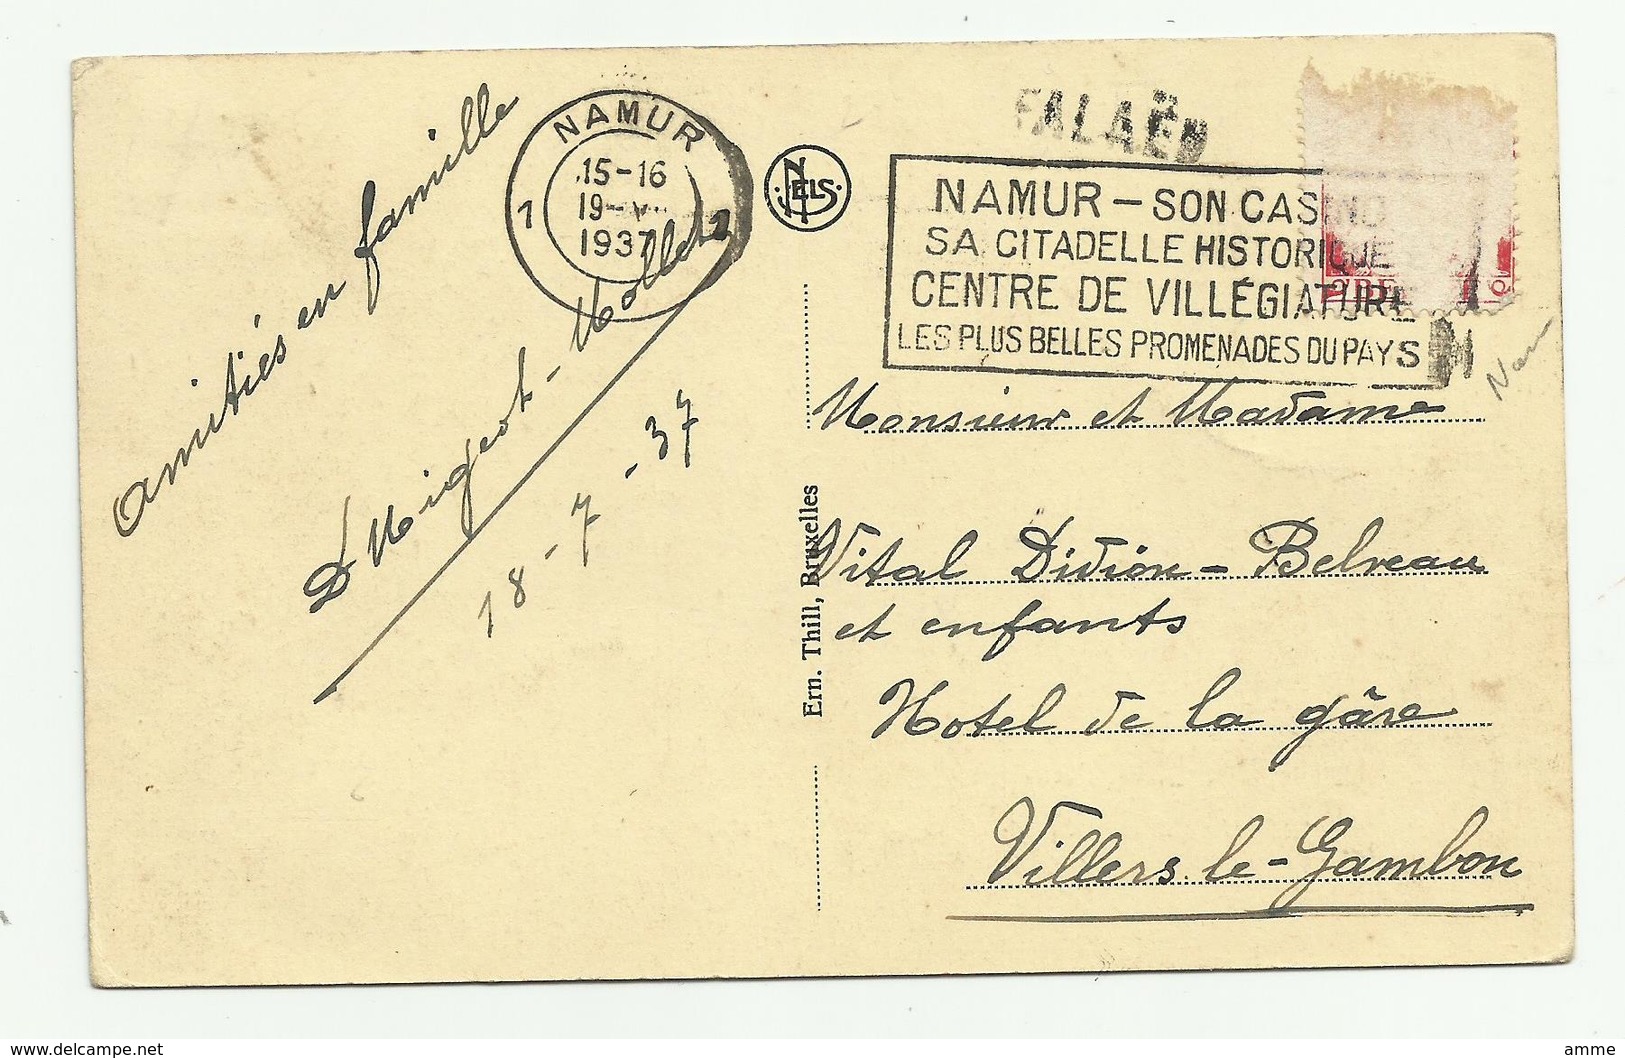 Amitiés en famille
Dr Migeot-Mollet
18-7-37
NAMUR
15-16
19-V
1937
1 1
NELS
FALAËN
NAMUR – SON CASINO
SA CITADELLE HISTORIQUE
CENTRE DE VILLÉGIATURE
LES PLUS BELLES PROMENADES DU PAYS
Nam
Ern. Thill, Bruxelles
Monsieur et Madame
Vital Didion-Belveau
et enfants
Hotel de la gâre
Villers-le-Gambon
delcampe.net
amme